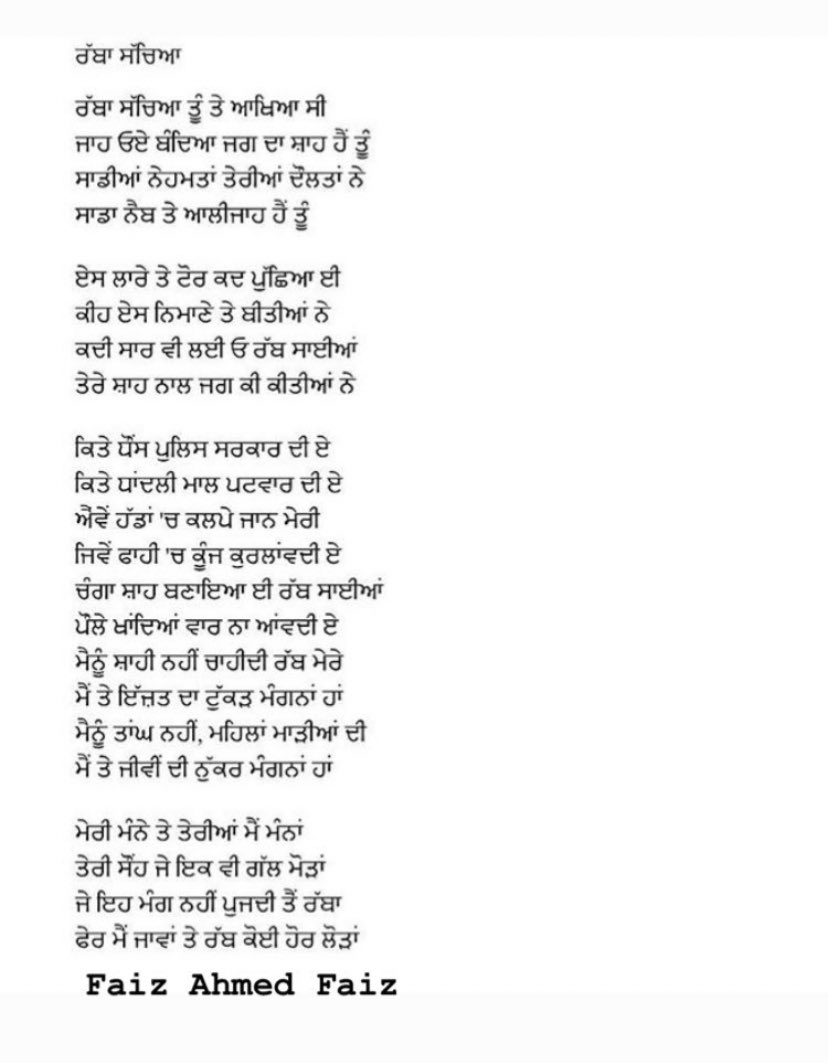 ਰੱਬਾ ਸੱਚਿਆ
ਰੱਬਾ ਸੱਚਿਆ ਤੂੰ ਤੇ ਆਖਿਆ ਸੀ
ਜਾਹ ਓਏ ਬੰਦਿਆ ਜਗ ਦਾ ਸ਼ਾਹ ਹੈਂ ਤੂੰ
ਸਾਡੀਆਂ ਨੇਹਮਤਾਂ ਤੇਰੀਆਂ ਦੌਲਤਾਂ ਨੇ
ਸਾਡਾ ਨੈਬ ਤੇ ਆਲੀਜਾਹ ਹੈਂ ਤੂੰ
ਏਸ ਲਾਰੇ ਤੇ ਟੋਰ ਕਦ ਪੁੱਛਿਆ ਈ
ਕੀਹ ਏਸ ਨਿਮਾਣੇ ਤੇ ਬੀਤੀਆਂ ਨੇ
ਕਦੀ ਸਾਰ ਵੀ ਲਈ ਓ ਰੱਬ ਸਾਈਆਂ
ਤੇਰੇ ਸ਼ਾਹ ਨਾਲ ਜਗ ਕੀ ਕੀਤੀਆਂ ਨੇ
ਕਿਤੇ ਧੌਂਸ ਪੁਲਿਸ ਸਰਕਾਰ ਦੀ ਏ
ਕਿਤੇ ਧਾਂਦਲੀ ਮਾਲ ਪਟਵਾਰ ਦੀ ਏ
ਐਂਵੇਂ ਹੱਡਾਂ 'ਚ ਕਲਪੇ ਜਾਨ ਮੇਰੀ
ਜਿਵੇਂ ਫਾਹੀ 'ਚ ਕੂੰਜ ਕੁਰਲਾਂਵਦੀ ਏ
ਚੰਗਾ ਸ਼ਾਹ ਬਣਾਇਆ ਈ ਰੱਬ ਸਾਈਆਂ
ਪੌਲੇ ਖਾਂਦਿਆਂ ਵਾਰ ਨਾ ਆਂਵਦੀ ਏ
ਮੈਨੂੰ ਸ਼ਾਹੀ ਨਹੀਂ ਚਾਹੀਦੀ ਰੱਬ ਮੇਰੇ
ਮੈਂ ਤੇ ਇੱਜ਼ਤ ਦਾ ਟੁੱਕੜ ਮੰਗਨਾਂ ਹਾਂ
ਮੈਨੂੰ ਤਾਂਘ ਨਹੀਂ, ਮਹਿਲਾਂ ਮਾੜੀਆਂ ਦੀ
ਮੈਂ ਤੇ ਜੀਵੀਂ ਦੀ ਨੁੱਕਰ ਮੰਗਨਾਂ ਹਾਂ
ਮੇਰੀ ਮੰਨੇ ਤੇ ਤੇਰੀਆਂ ਮੈਂ ਮੰਨਾਂ
ਤੇਰੀ ਸੌਂਹ ਜੇ ਇਕ ਵੀ ਗੱਲ ਮੋੜਾਂ
ਜੇ ਇਹ ਮੰਗ ਨਹੀਂ ਪੁਜਦੀ ਤੈਂ ਰੱਬਾ
ਫੇਰ ਮੈਂ ਜਾਵਾਂ ਤੇ ਰੱਬ ਕੋਈ ਹੋਰ ਲੋੜਾਂ
Faiz Ahmed Faiz